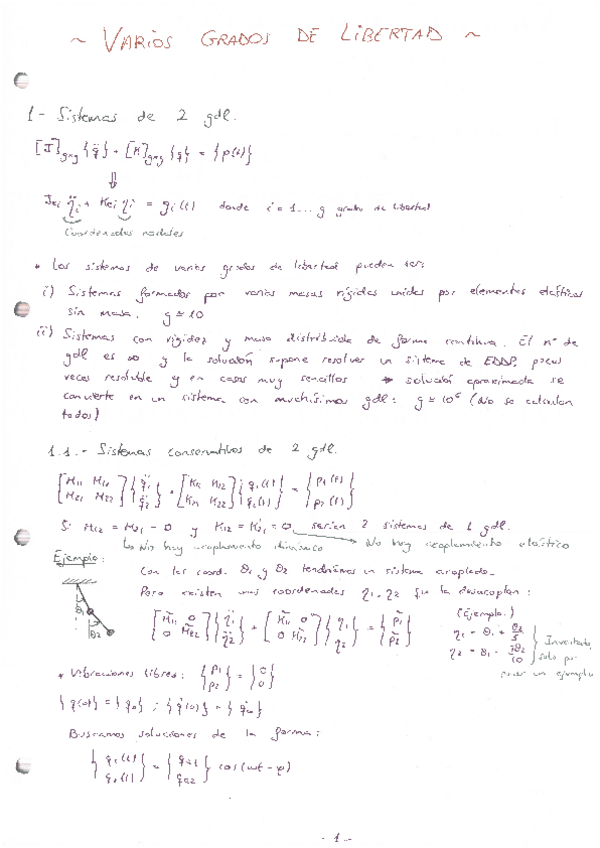 ~ VARIOS GRADOS DE LIBERTAD ~
1- Sistemas de 2 gdl.
[J]gxg {q̈} + [K]gxg {q} = {p(t)}
⇓
Jei η̈i + Kei ηi = gi(t) donde i = 1... g grados de libertad
Coordenadas nodales
• Los sistemas de varios grados de libertad pueden ser:
i) Sistemas formados por varias masas rígidas unidas por elementos elásticos
sin masa. g ≃ 10
ii) Sistemas con rigidez y masa distribuida de forma continua. El nº de
gdl es ∞ y la solución supone resolver un sistema de EDDP, pocas
veces resoluble y en casos muy sencillos → solución aproximada se
convierte en un sistema con muchísimos gdl: g ≃ 10⁶ (No se calculan
todos)
1.1.- Sistemas conservativos de 2 gdl.
[M11 M12 M21 M22] {q̈1 q̈2} + [K11 K12 K21 K22] {q1(t) q2(t)} = {p1(t) p2(t)}
Si M12 = M21 = 0 y K12 = K21 = 0, serían 2 sistemas de 1 gdl.
↳ No hay acoplamiento dinámico → No hay acoplamiento elástico
Ejemplo:
Con las coord. θ1 y θ2 tendríamos un sistema acoplado.
Pero existen unas coordenadas η1, η2 que lo desacoplan:
θ1
θ2
(Ejemplo.)
η1 = θ1 + θ2/5
η2 = θ1 - 3θ2/10
Inventado,
solo por
poner un ejemplo
• Vibraciones libres: {p1 p2} = {0 0}
{q(0)} = {q0} ; {q̇(0)} = {q̇0}
Buscamos soluciones de la forma:
{q1(t) q2(t)} = {qa1 qa2} cos(ωt - φ)
- 1 -